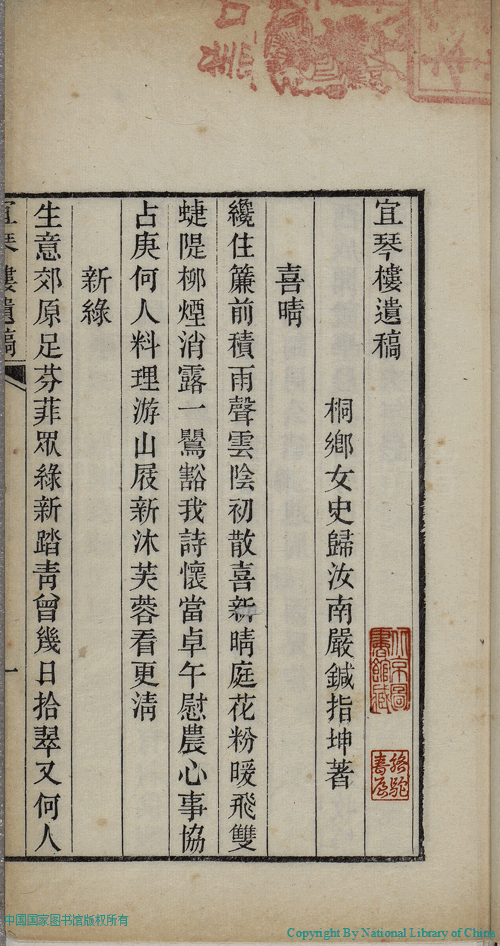 宜琴樓遺稿
桐鄉女史歸汝南嚴鍼指坤著
喜晴
纔住簾前積雨聲雲陰初散喜新晴庭花粉暖飛雙
蜨隄柳煙消露一鶯豁我詩懷當卓午慰農心事協
占庚何人料理游山屐新沐芙蓉看更淸
新綠
生意郊原足芬菲眾綠新踏靑曾幾日拾翠又何人
宜琴樓遺稿
一
北京圖書館藏
中国国家图书馆版权所有
Copyright By National Library of China